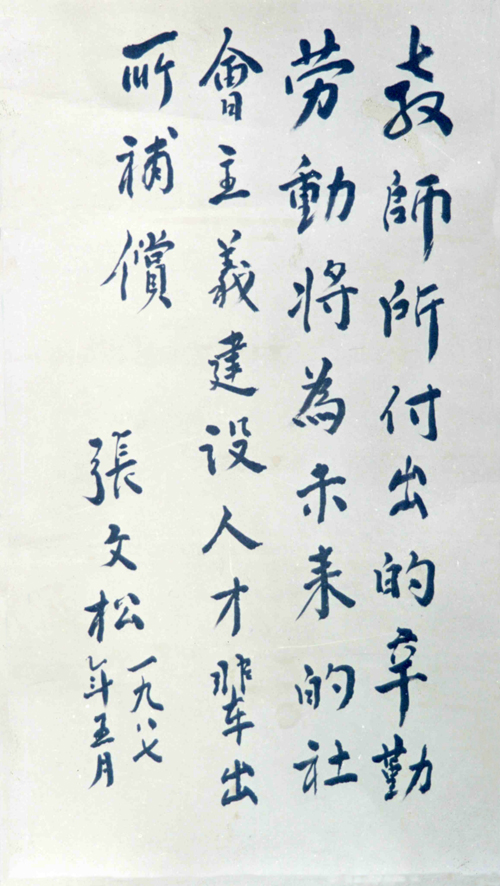 教師所付出的辛勤
劳動将為未来的社
會主義建设人才辈出
所補償
張文松
一九八七
年五月